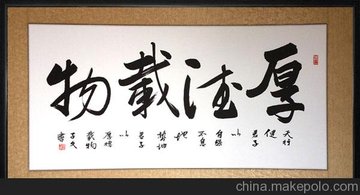 厚德載物
天行
健
君子
以
自強
不息
地
勢坤
君子
以
厚德
載物
china.makepolo.com